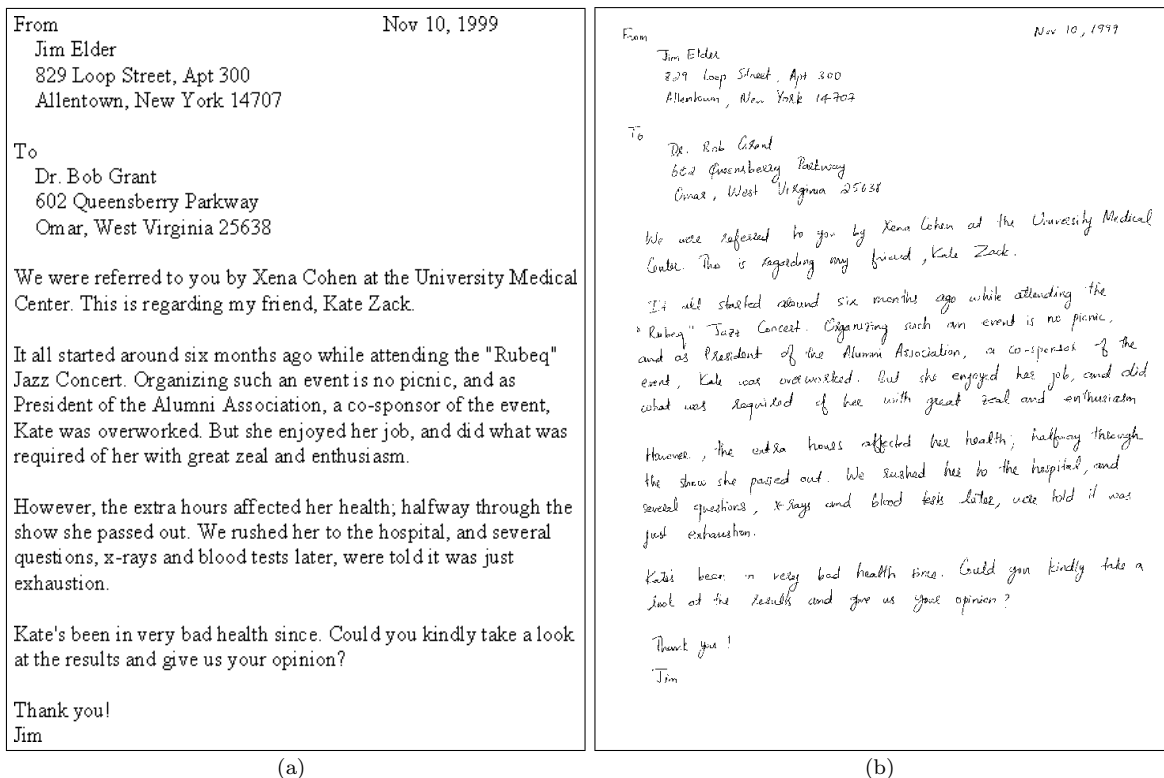 From Nov 10, 1999
Jim Elder
829 Loop Street, Apt 300
Allentown, New York 14707
To
Dr. Bob Grant
602 Queensberry Parkway
Omar, West Virginia 25638
We were referred to you by Xena Cohen at the University Medical
Center. This is regarding my friend, Kate Zack.
It all started around six months ago while attending the "Rubeq"
Jazz Concert. Organizing such an event is no picnic, and as
President of the Alumni Association, a co-sponsor of the event,
Kate was overworked. But she enjoyed her job, and did what was
required of her with great zeal and enthusiasm.
However, the extra hours affected her health; halfway through the
show she passed out. We rushed her to the hospital, and several
questions, x-rays and blood tests later, were told it was just
exhaustion.
Kate's been in very bad health since. Could you kindly take a look
at the results and give us your opinion?
Thank you!
Jim
(a)
From Nov 10, 1999
Jim Elder
829 Loop Street, Apt 300
Allentown, New York 14707
To
Dr. Bob Grant
602 Queensberry Parkway
Omar, West Virginia 25638
We were referred to you by Xena Cohen at the University Medical
Center. This is regarding my friend, Kate Zack.
It all started around six months ago while attending the
"Rubeq" Jazz Concert. Organizing such an event is no picnic,
and as President of the Alumni Association, a co-sponsor of the
event, Kate was overworked. But she enjoyed her job, and did
what was required of her with great zeal and enthusiasm
However, the extra hours affected her health; halfway through
the show she passed out. We rushed her to the hospital, and
several questions, x-rays and blood tests later, were told it was
just exhaustion.
Kate's been in very bad health since. Could you kindly take a
look at the results and give us your opinion?
Thank you!
Jim
(b)